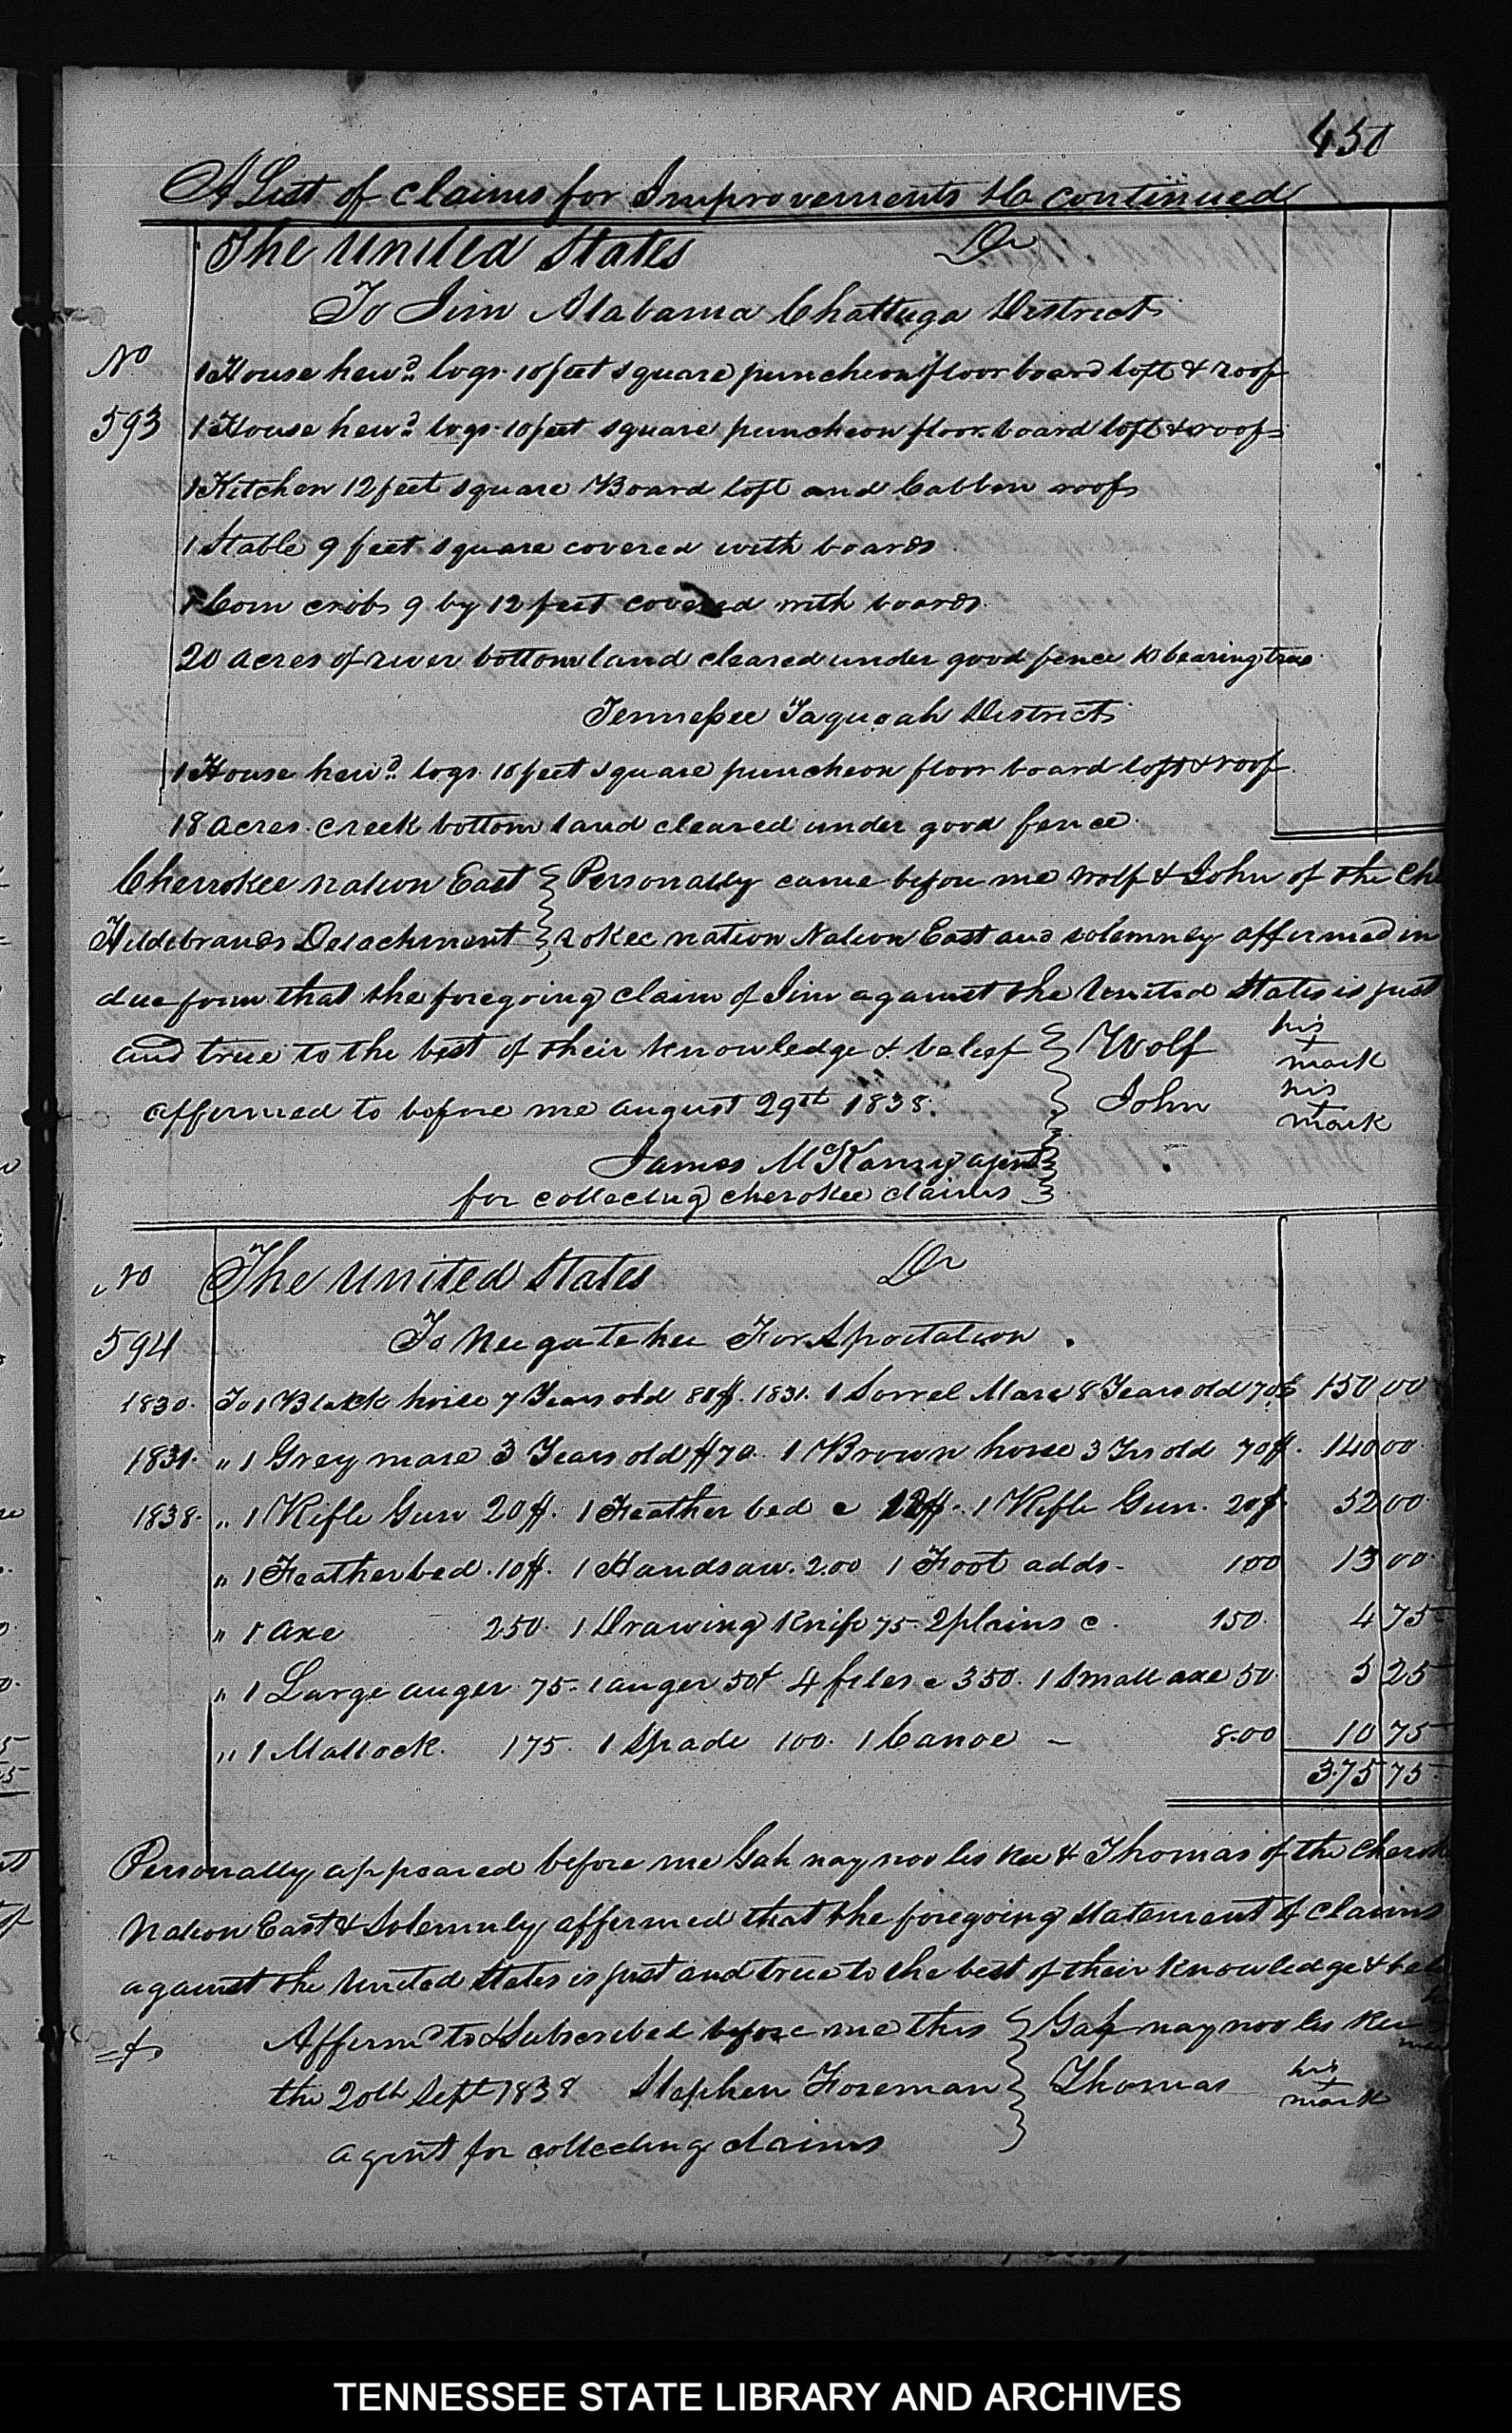 450
A List of claims for Improvements &c continued
The United States Dr
To Jim Alabama Chattuga District
No 1 House hewd logs 18 feet square puncheon floor board loft & roof
593 1 House hewd logs 10 feet square puncheon floor board loft & roof
1 Kitchen 12 feet square Board loft and Cabbin roof
1 Stable 9 feet square covered with boards
1 Corn crib 9 by 12 feet covered with boards
20 acres of river bottom land cleared under good fence 10 bearing trees
Tennessee Taquoah District
1 House hewd logs 18 feet square puncheon floor board loft & roof
18 acres creek bottom land cleared under good fence
Cherrokee nation East } Personally came before me Wolf & John of the Che
Hildebrands Detachment } rokee nation Nation East and solemnly affirmed in
due form that the foregoing claim of Jim against the United States is just
and true to the best of their knowledge & belief } Wolf his mark
affirmed to before me august 29th 1838. } John his mark
James McKamy agent
for collecting cherokee claims
No The United States Dr
594 To Neegatehee For Spoitation.
1830. To 1 Black horse 7 Years old 80$. 1831. 1 Sorrel Mare 8 Years old 70$ 150 00
1831. " 1 Grey mare 3 Years old $70. 1 Brown horse 3 Yrs old 70$. 140 00
1838. " 1 Rifle Gun 20$. 1 Feather bed c 12$. 1 Rifle Gun. 20$. 52 00
" 1 Featherbed. 10$. 1 Handsaw. 2.00 1 Foot adds - 100 13 00
" 1 axe 250. 1 Drawing Knife 75. 2 plains c. 150. 4 75
" 1 Large auger 75. 1 auger 50¢ 4 files c 350. 1 Small axe 50 5 25
" 1 Mattock. 175. 1 Spade 100. 1 Canoe - 8.00 10 75
375 75
Personally appeared before me Gah nay noo les kee & Thomas of the Cherok
Nation East & Solemnly affirmed that the foregoing statement of claims
against the United States is just and true to the best of their knowledge & bele
Affirmd to & Subscribed before me this } Gah nay noo les kee
the 20th Sept 1838 Stephen Foreman } Thomas his mark
agent for collecting claims
TENNESSEE STATE LIBRARY AND ARCHIVES